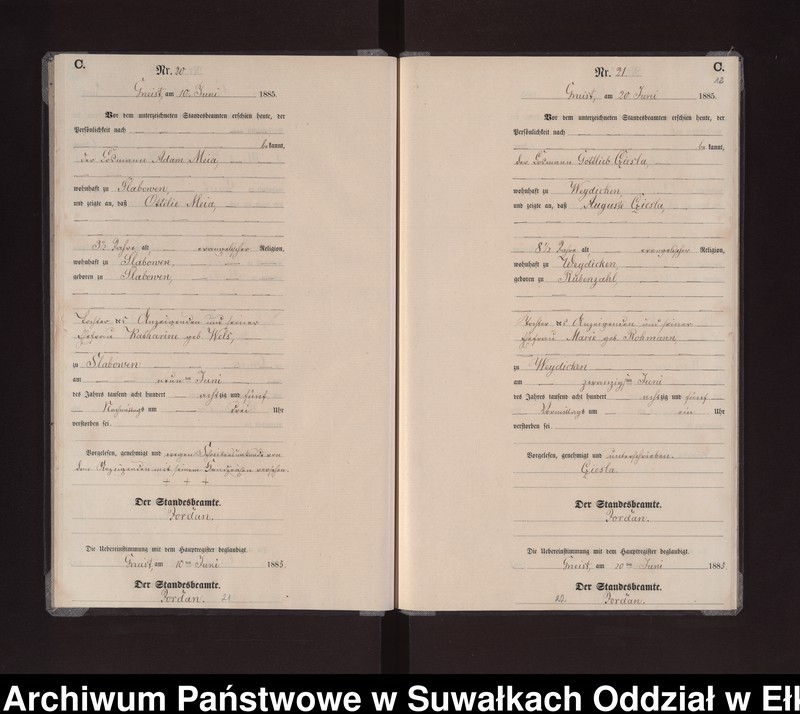 C.
Nr. 20
Gneist, am 10. Juni 1885.
Vor dem unterzeichneten Standesbeamten erschien heute, der
Persönlichkeit nach
bekannt,
der Losmann Adam Meia,
wohnhaft zu Slabowen,
und zeigte an, daß Ottilie Meia,
3½ Jahre alt evangelischer Religion,
wohnhaft zu Slabowen,
geboren zu Slabowen,
Tochter des Anzeigenden und seiner
Ehefrau Katharine geb. Wels,
zu Slabowen
am neunten Juni
des Jahres tausend acht hundert achtzig und fünf
Nachmittags um drei Uhr
verstorben sei.
Vorgelesen, genehmigt und wegen Schreibensunkunde von
dem Anzeigenden mit seinem Handzeichen versehen.
+ + +
Der Standesbeamte.
Jordan.
Die Uebereinstimmung mit dem Hauptregister beglaubigt.
Gneist, am 10ten Juni 1885.
Der Standesbeamte.
Jordan. 21
C.
Nr. 21.
12
Gneist, am 20 Juni 1885.
Vor dem unterzeichneten Standesbeamten erschien heute, der
Persönlichkeit nach
bekannt,
der Losmann Gottlieb Cziesla,
wohnhaft zu Weydicken,
und zeigte an, daß Auguste Cziesla,
8½ Jahre alt evangelischer Religion,
wohnhaft zu Weydicken,
geboren zu Rübenzahl,
Tochter des Anzeigenden und seiner
Ehefrau Marie geb. Rohmann,
zu Weydicken
am zwanzigsten Juni
des Jahres tausend acht hundert achtzig und fünf
Vormittags um ein Uhr
verstorben sei.
Vorgelesen, genehmigt und unterschrieben.
Cziesla.
Der Standesbeamte.
Jordan.
Die Uebereinstimmung mit dem Hauptregister beglaubigt.
Gneist, am 20ten Juni 1885
Der Standesbeamte.
22. Jordan.
Archiwum Państwowe w Suwałkach Oddział w Ełk